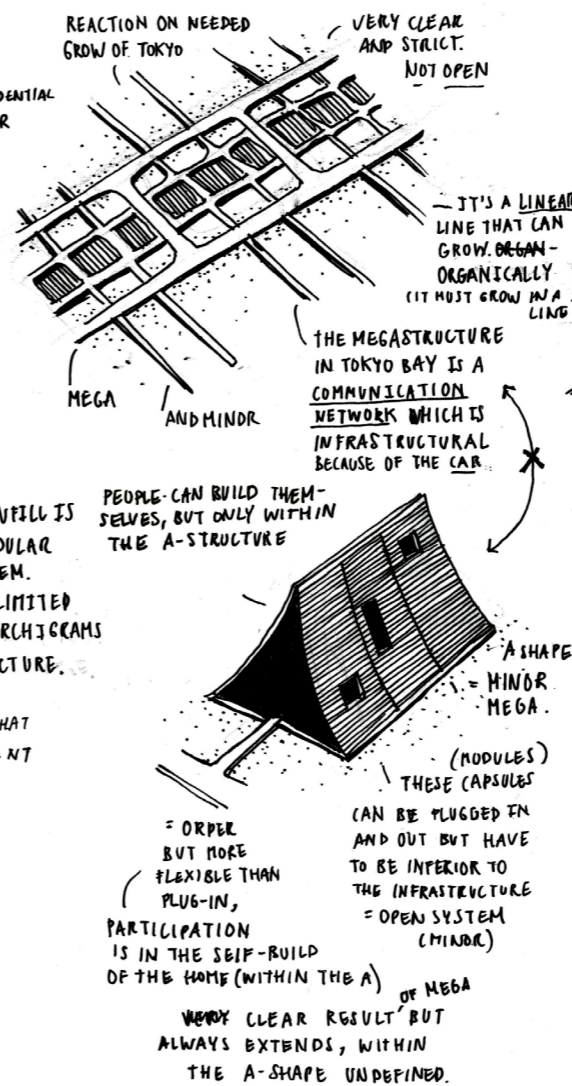 REACTION ON NEEDED
GROW OF TOKYO
VERY CLEAR
AND STRICT.
NOT OPEN
DENTIAL
R
— IT'S A LINEAR
LINE THAT CAN
GROW. ORGAN-
ORGANICALLY
(IT MUST GROW IN A
LINE
THE MEGASTRUCTURE
IN TOKYO BAY IS A
COMMUNICATION
NETWORK WHICH IS
INFRASTRUCTURAL
BECAUSE OF THE CAR
MEGA
AND MINOR
NFILL IS
DULAR
EM.
LIMITED
RCHIGRAMS
CTURE.
HAT
NT
PEOPLE CAN BUILD THEM-
SELVES, BUT ONLY WITHIN
THE A-STRUCTURE
A SHAPE
= MINOR
MEGA.
(MODULES)
THESE CAPSULES
CAN BE PLUGGED IN
AND OUT BUT HAVE
TO BE INFERIOR TO
THE INFRASTRUCTURE
= OPEN SYSTEM
(MINOR)
= ORDER
BUT MORE
FLEXIBLE THAN
PLUG-IN,
PARTICIPATION
IS IN THE SELF-BUILD
OF THE HOME (WITHIN THE A)
VERY CLEAR RESULT OF MEGA BUT
ALWAYS EXTENDS, WITHIN
THE A-SHAPE UNDEFINED.